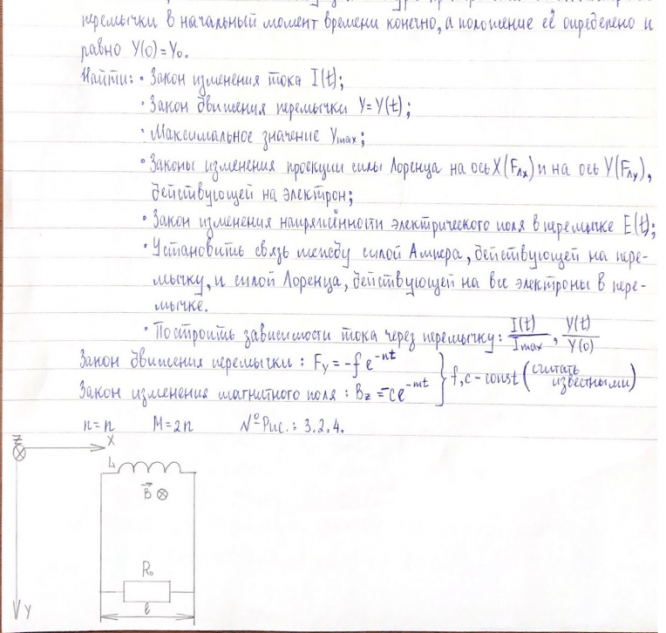 перемычки в начальный момент времени конечно, а положение её определено и
равно Y(0)=Y₀.
Найти: • Закон изменения тока I(t);
• Закон движения перемычки Y=Y(t);
• Максимальное значение Yₘₐₓ;
• Законы изменения проекции силы Лоренца на ось X(Fлx) и на ось Y(Fлy),
действующей на электрон;
• Закон изменения напряжённости электрического поля в перемычке E(t);
• Установить связь между силой Ампера, действующей на пере-
мычку, и силой Лоренца, действующей на все электроны в пере-
мычке.
• Построить зависимости тока через перемычку: I(t)/Imax, Y(t)/Y(0)
Закон движения перемычки: Fy = -fe^-nt
Закон изменения магнитного поля: Bz = -ce^-mt
} f,c - const (считать известными)
n=n M=2n №Рис.: 3.2.4.
Z
X
L
B
R₀
l
Y